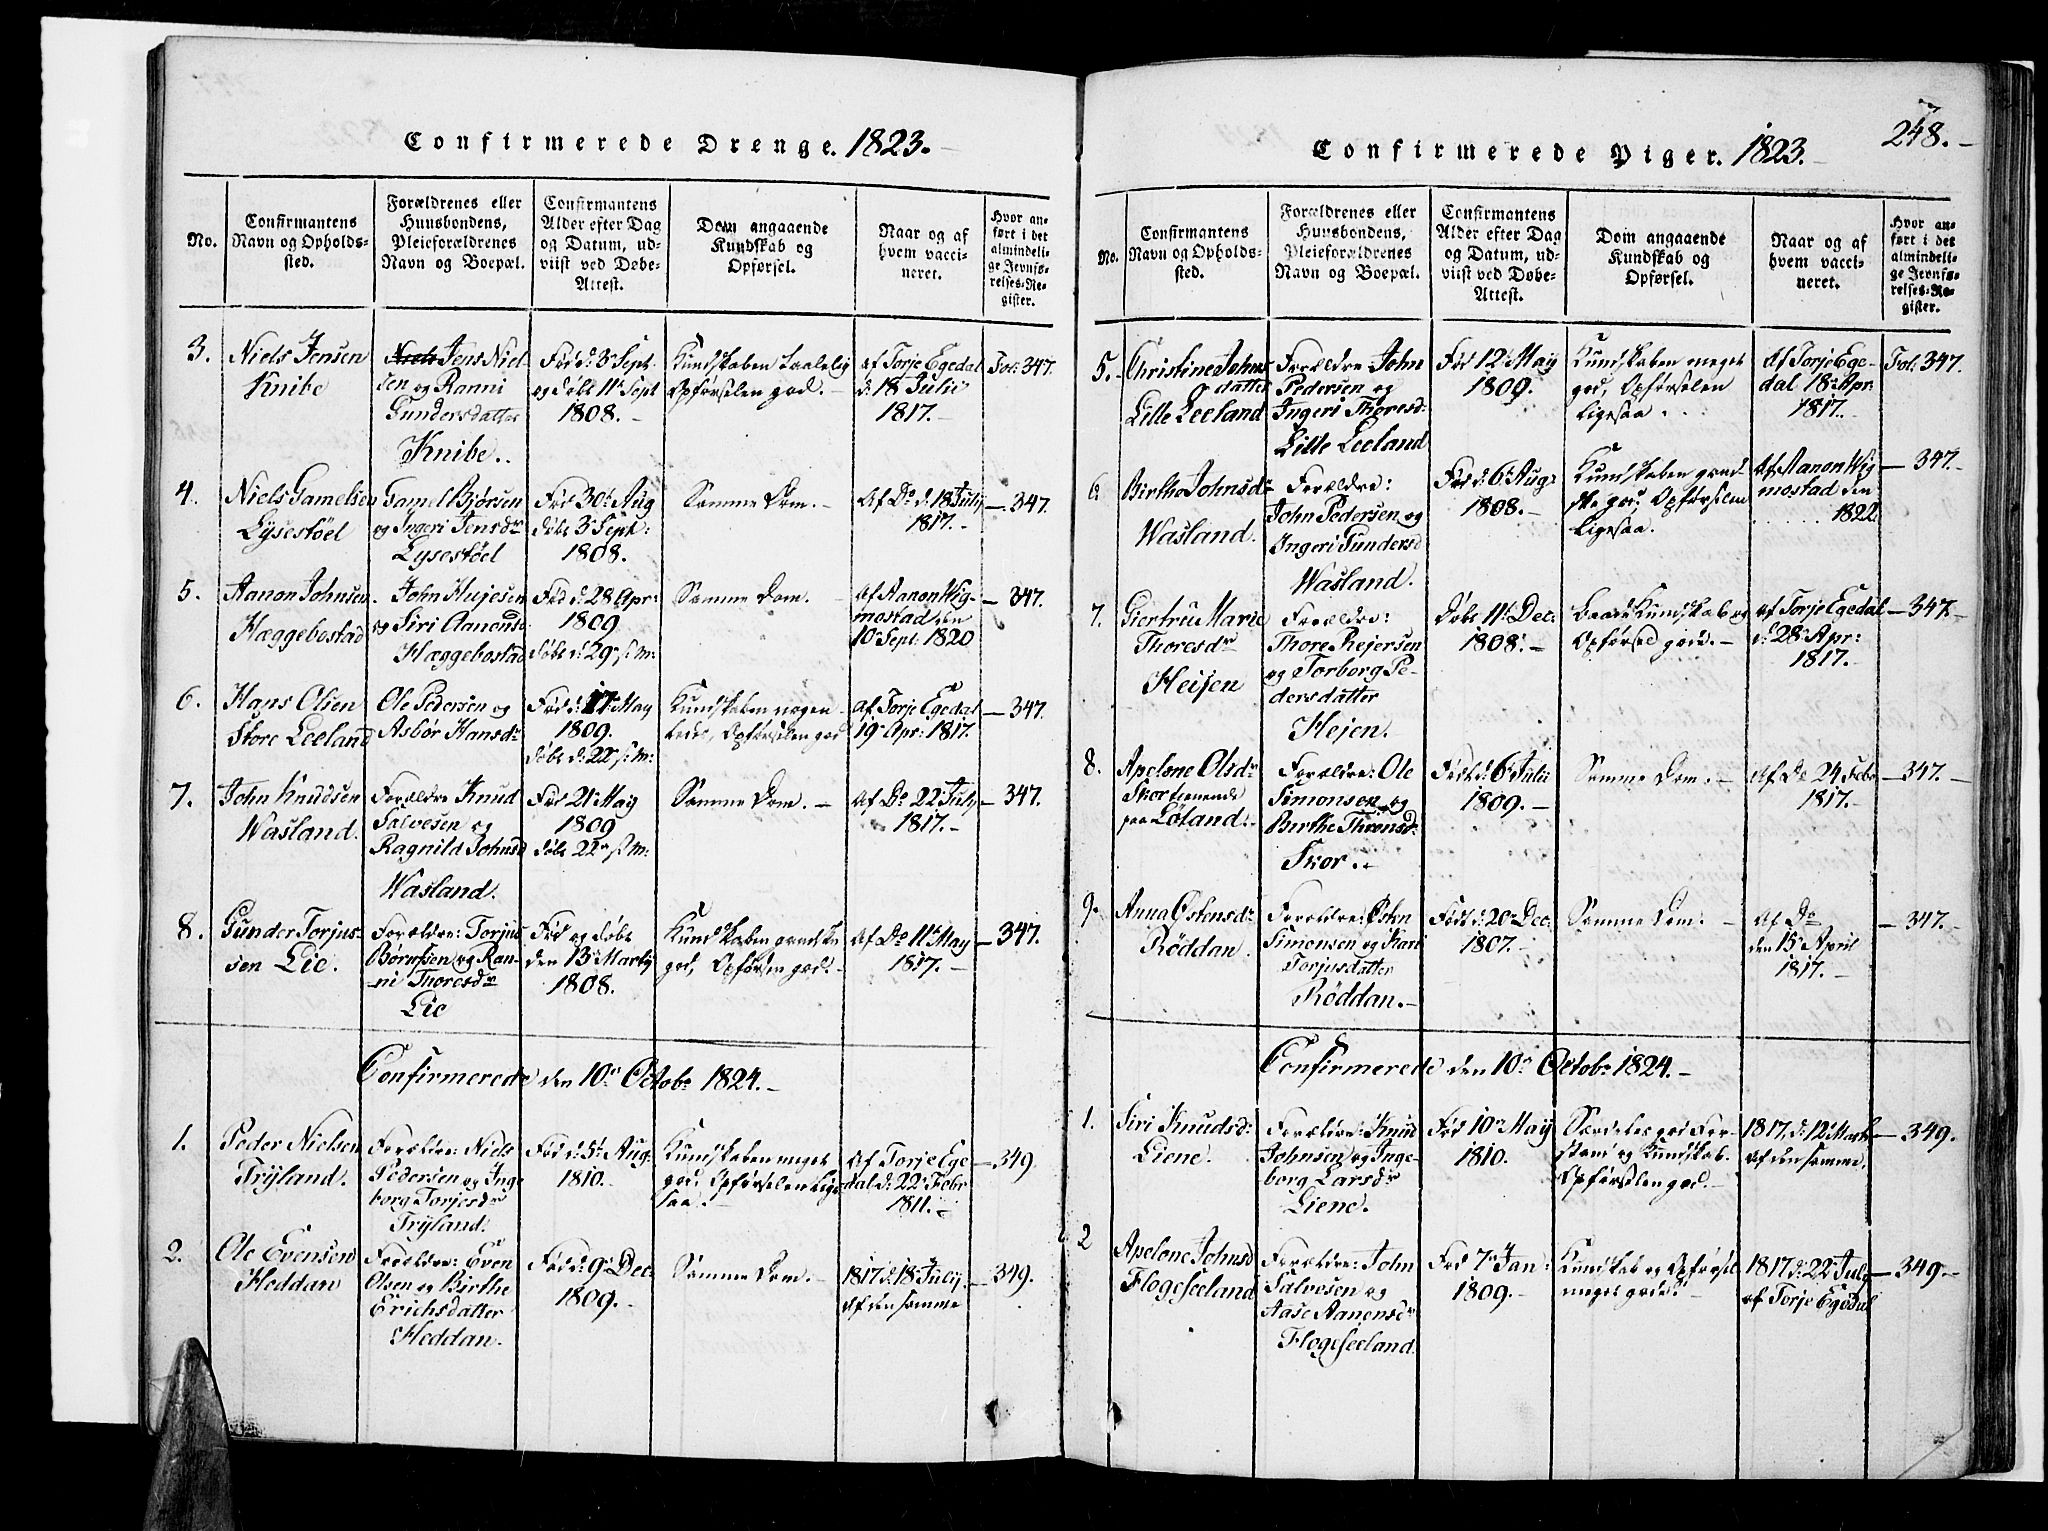 Confirmerede Drenge. 1823.
No.
Confirmantens
Navn og Opholds-
sted.
Forældrenes eller
Huusbondens,
Pleieforældrenes
Navn og Boepæl.
Confirmantens
Alder efter Dag
og Datum, ud-
viist ved Døbe-
Attest.
Dom angaaende
Kundskab og
Opførsel.
Naar og af
hvem vacci-
neret.
Hvor an-
ført i det
almindeli-
ge Jevnfø-
relses-Re-
gister.
3.
Niels Jensen
Knibe
Niels Jens Niel-
sen og Ranni
Gundersdatter
Knibe..
Fød d: 3 Sept
og døbt 11te Sept
1808. -
Kundskaben taalelig
Opførselen god. -
af Torje Egedal
d: 18 Julii
1817. -
Fol: 347.
4.
Niels Gamelsen
Lysestøel
Gamel Bjørsen
og Ingeri Jensdr
Lysestøel
Fød 30t Aug
døbt 3 Sept:
1808.
Samme Dom. -
Af Do d: 18 July
1817. -
347.
5.
Aanon Johnsen
Hæggebostad
John Hujesen
og Siri Aanonsd
Hæggebostad
Fød d: 28 Apr:
1809
døbt d: 29 s: M:
Samme Dom. -
af Aanon Wig-
mostad den
10 Sept. 1820
347.
6.
Hans Olsen
Store Leeland
Ole Pedersen og
Asbør Hansdr
Fød d: 17 May
1809.
døbt d: 22 s: M:
Kundskaben nogen-
ledes, Opførselen god
Af Torje Egedal
19 Apr: 1817.
347.
7.
John Knudsen
Wasland.
Forældre Knud
Salvesen og
Ragnild Johnsd
Wasland.
Fød 21 May
1809
døbt 22 s: M:
Samme Dom. -
Af Do 22 July
1817. -
347.
8.
Gunder Torjus-
sen Lie.
Forældre: Torjus
Børufsen og Ran-
ni Thoresdr
Lie
Fød og døbt
den 13 Martij
1808.
Kundskaben gandske
god, Opførselen god. -
Af Do 11te May
1817. -
347.
Confirmerede den 10de Octobr 1824. -
1.
Peder Nielsen
Tryland.
Forældre: Niels
Pedersen og Inge-
borg Torjesdr
Tryland.
Fød d: 5t Aug.
1810. -
Kundskaben meget
god, Opførselen lige-
saa. -
Af Torje Ege-
dal d: 22 Febr
1811. -
349.
2.
Ole Evensen
Heddan
Forældre: Even
Olsen og Birthe
Erichsdatter
Heddan.
Fød d: 9 Dec:
1809. -
Samme Dom. -
1817 d: 18 Julij.
af den samme
349.
Confirmerede Piger. 1823. -
248. -
No.
Confirmantens
Navn og Opholds-
sted.
Forældrenes eller
Huusbondens,
Pleieforældrenes
Navn og Boepæl.
Confirmantens
Alder efter Dag
og Datum, ud-
viist ved Døbe-
Attest.
Dom angaaende
Kundskab og
Opførsel.
Naar og af
hvem vacci-
neret.
Hvor an-
ført i det
almindeli-
ge Jevnfø-
relses-Re-
gister.
5.
Christine Johns
datter
Lille Leeland
Forældre John
Pedersen og
Ingeri Thoresd:
Lille Leeland
Fød 12 May
1809.
Kundskaben meget
god, Opførselen
ligesaa.
Af Torje Ege-
dal 18 Apr:
1817. -
Fol: 347.
6
Birthe Johnsdr
Wasland.
Forældre:
John Pedersen og
Ingeri Gundersd
Wasland.
Fød d: 6 Aug:
1808. -
Kundskaben gand-
ske god, Opførselen
ligesaa.
Af Aanon Wig-
mostad den
1822.
347. -
7.
Giertru Marie
Thoresdr
Heijen
Forældre:
Thore Rejersen
og Torborg Pe-
dersdatter
Hejen.
Døbt 11te Dec:
1808. -
baade Kundskab og
Opførsel gode. -
af Torje Egedal
d: 28 Apr:
1817. -
347. -
8.
Apelone Olsdr
Skor tienende
paa Løland. -
Forældre: Ole
Simonsen og
Birthe Thronsd:
Skor. -
Født d: 6 Julii
1809. -
Samme Dom. -
Af Do 24 Febr
1817. -
347. -
9.
Anna Østensdr
Røddan.
Forældre: Østen
Simonsen og Kari
Torjusdatter
Røddan. -
Født d: 20 Dec.
1807. -
Samme Dom: -
Af Do
den 15 April
1817. -
347. -
Confirmerede den 10de Octobr 1824. -
1.
Siri Knudsd:
Liene.
Forældre: Knud
Johnsen og Inge-
borg Larsdr
Liene.
Fød 10 May
1810. -
Særdeles god For-
stand og Kundskab.
Opførselen god. -
1817, d: 12 Marti
af den samme.
349.
2
Apelone Johnsd
Flogeseeland
Forældre: John
Salvesen og
Aase Aanensdr
Flogeseeland.
Fød 7 Jan:
1809. -
Kundskab og Opførsel
meget gode. -
1817 d: 22 July
af Torje Egedal
349. -